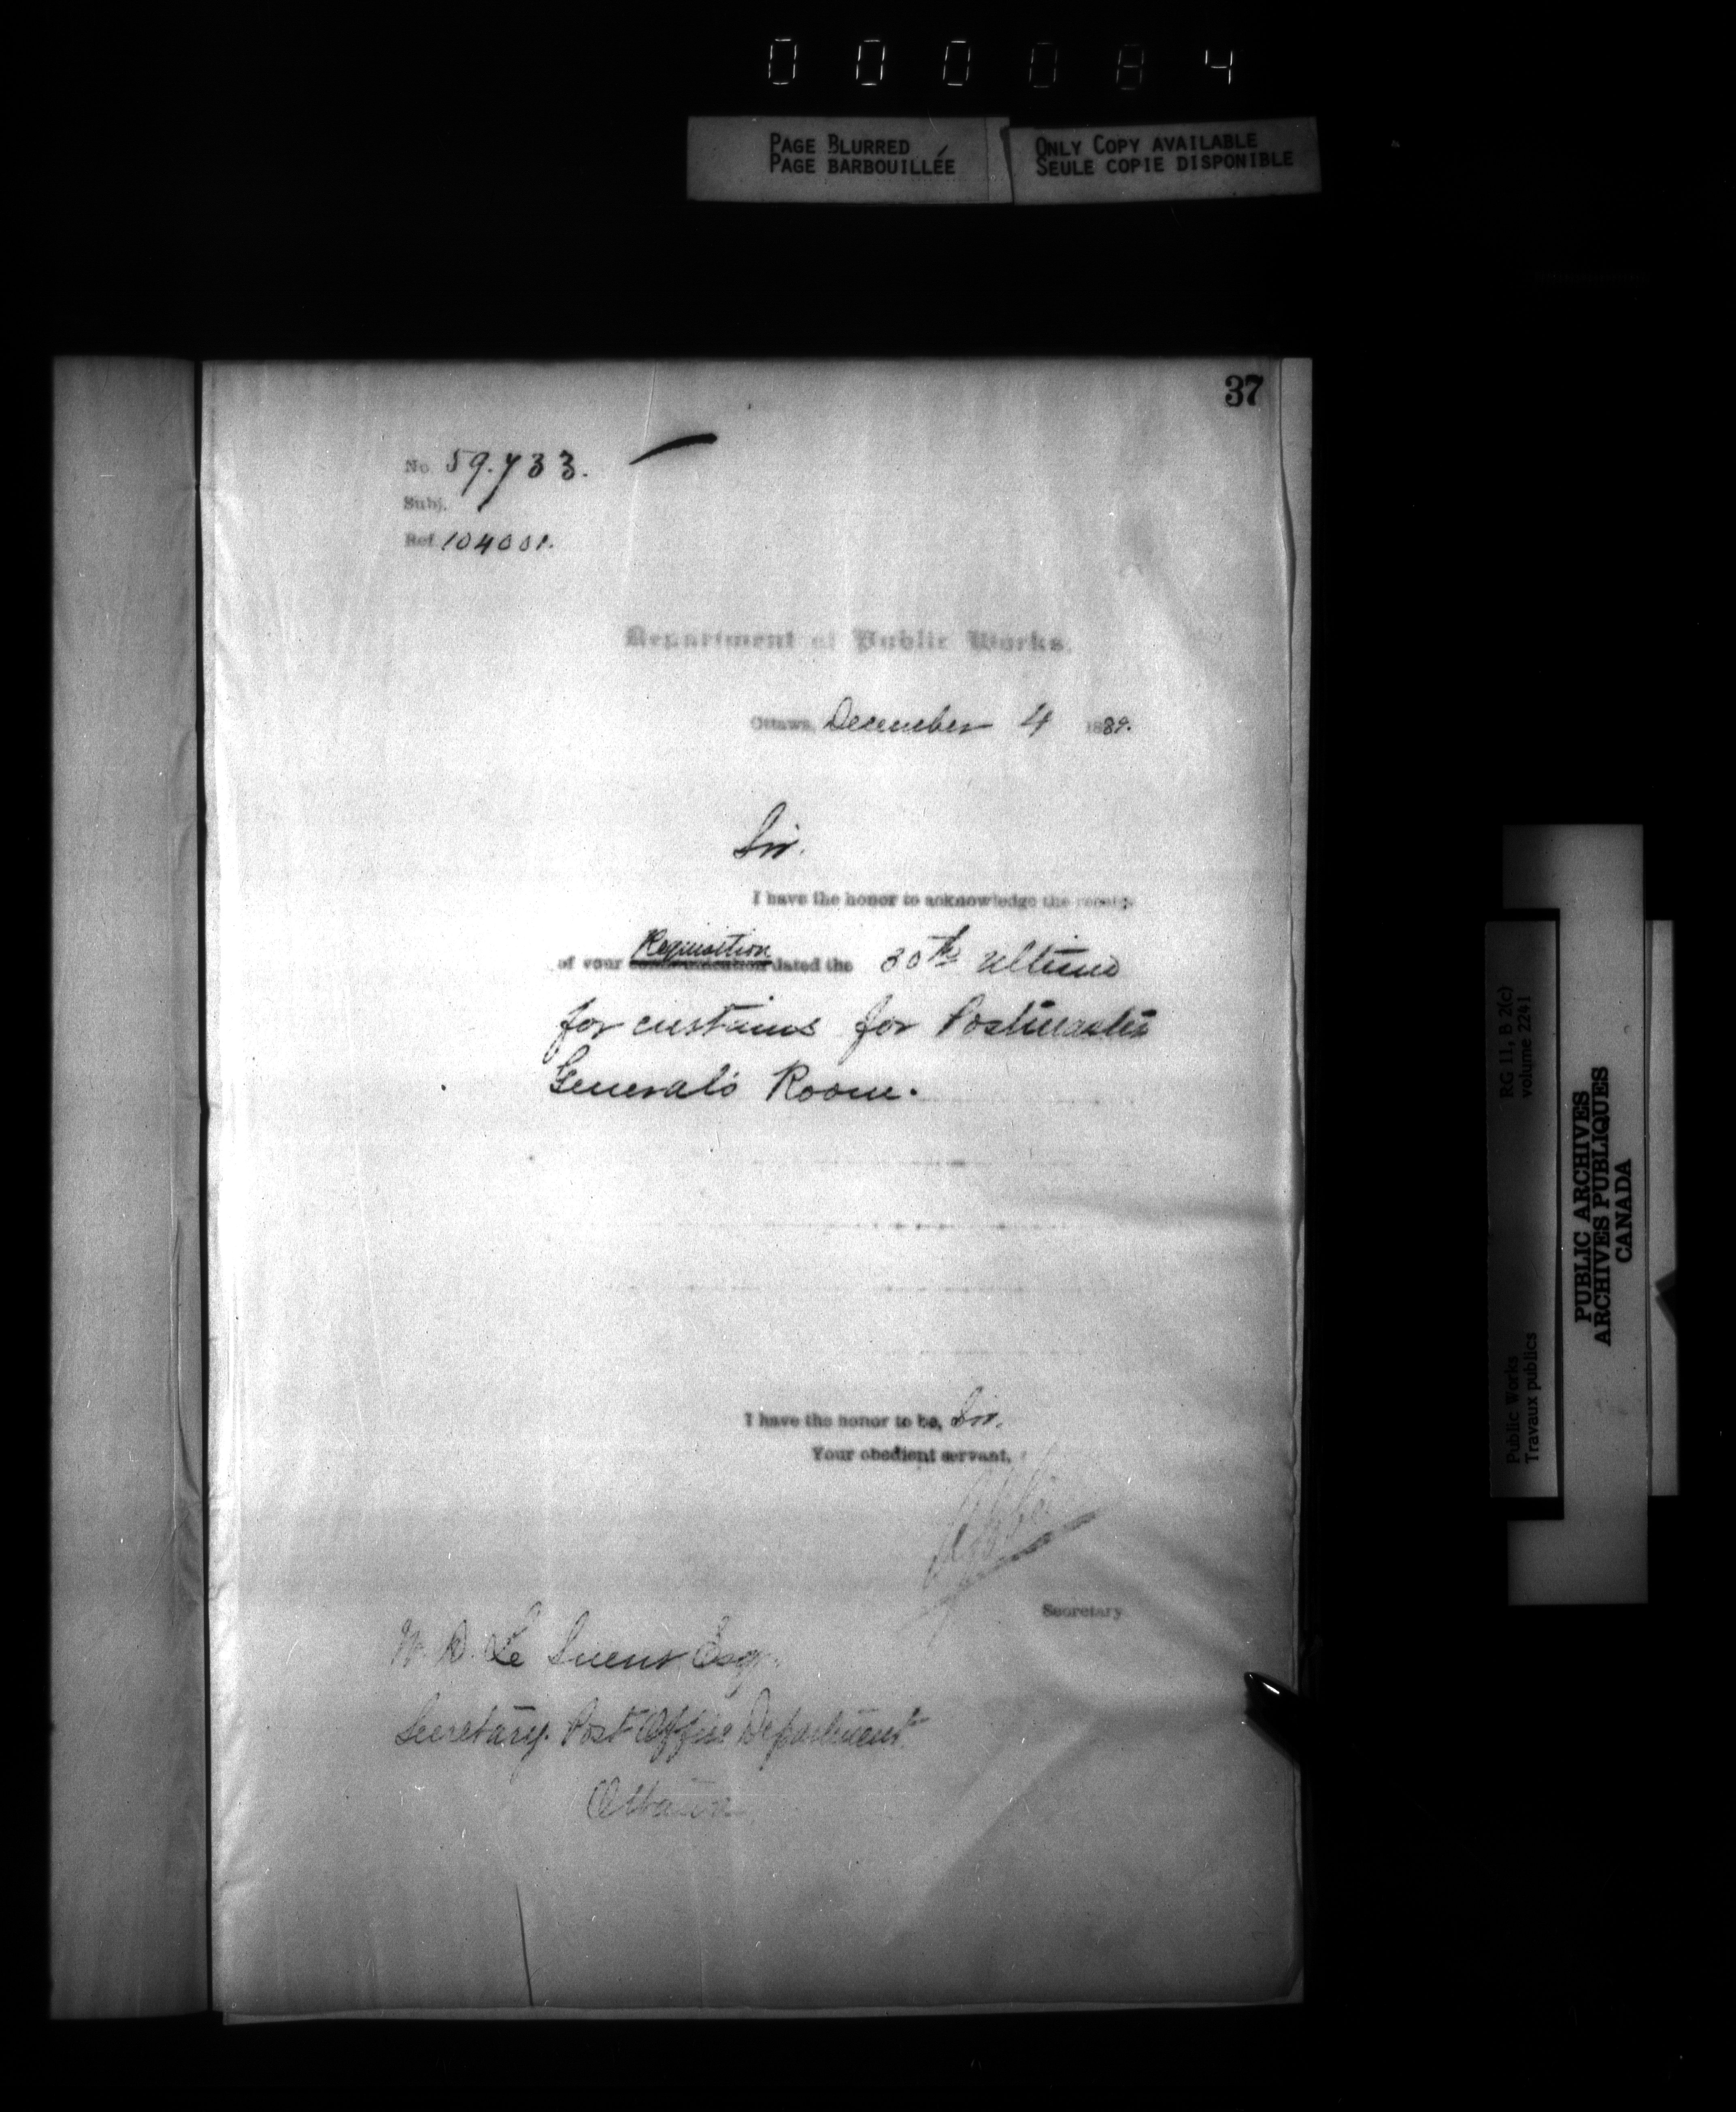 000084
PAGE BLURRED
PAGE BARBOUILLÉE
ONLY COPY AVAILABLE
SEULE COPIE DISPONIBLE
37
No. 59.733.
Subj.
Ref. 104001.
Department of Public Works.
Ottawa, December 4 1889.
Sir.
I have the honor to acknowledge the receipt
of your Requisition dated the 30th ultimo
for curtains for Postmaster
General's Room.
I have the honor to be, Sir.
Your obedient servant,
Secretary
W. D. Le Sueur Esqr.
Secretary. Post Office Department
Ottawa
RG 11, B 2(c)
volume 2241
Public Works
Travaux publics
PUBLIC ARCHIVES
ARCHIVES PUBLIQUES
CANADA